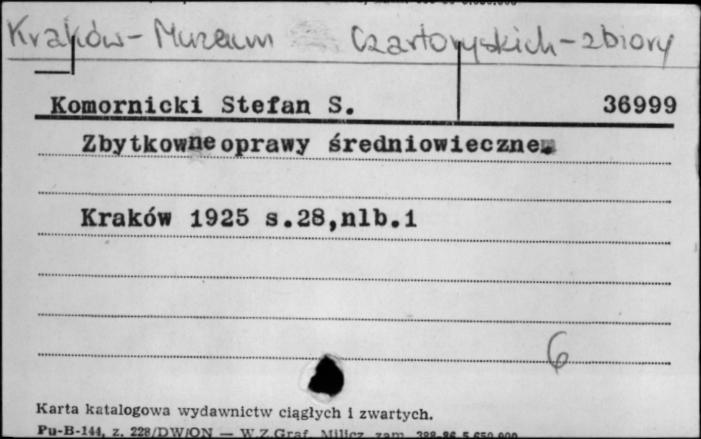 Kraków - Muzeum Czartoryskich - zbiory
Komornicki Stefan S. 36999
Zbytkowne oprawy średniowieczne.
Kraków 1925 s.28,nlb.1
6
Karta katalogowa wydawnictw ciągłych i zwartych.
Pu-B-144, z. 228/DW/ON — W.Z.Graf. Milicz zam. 388-86 5.650.000